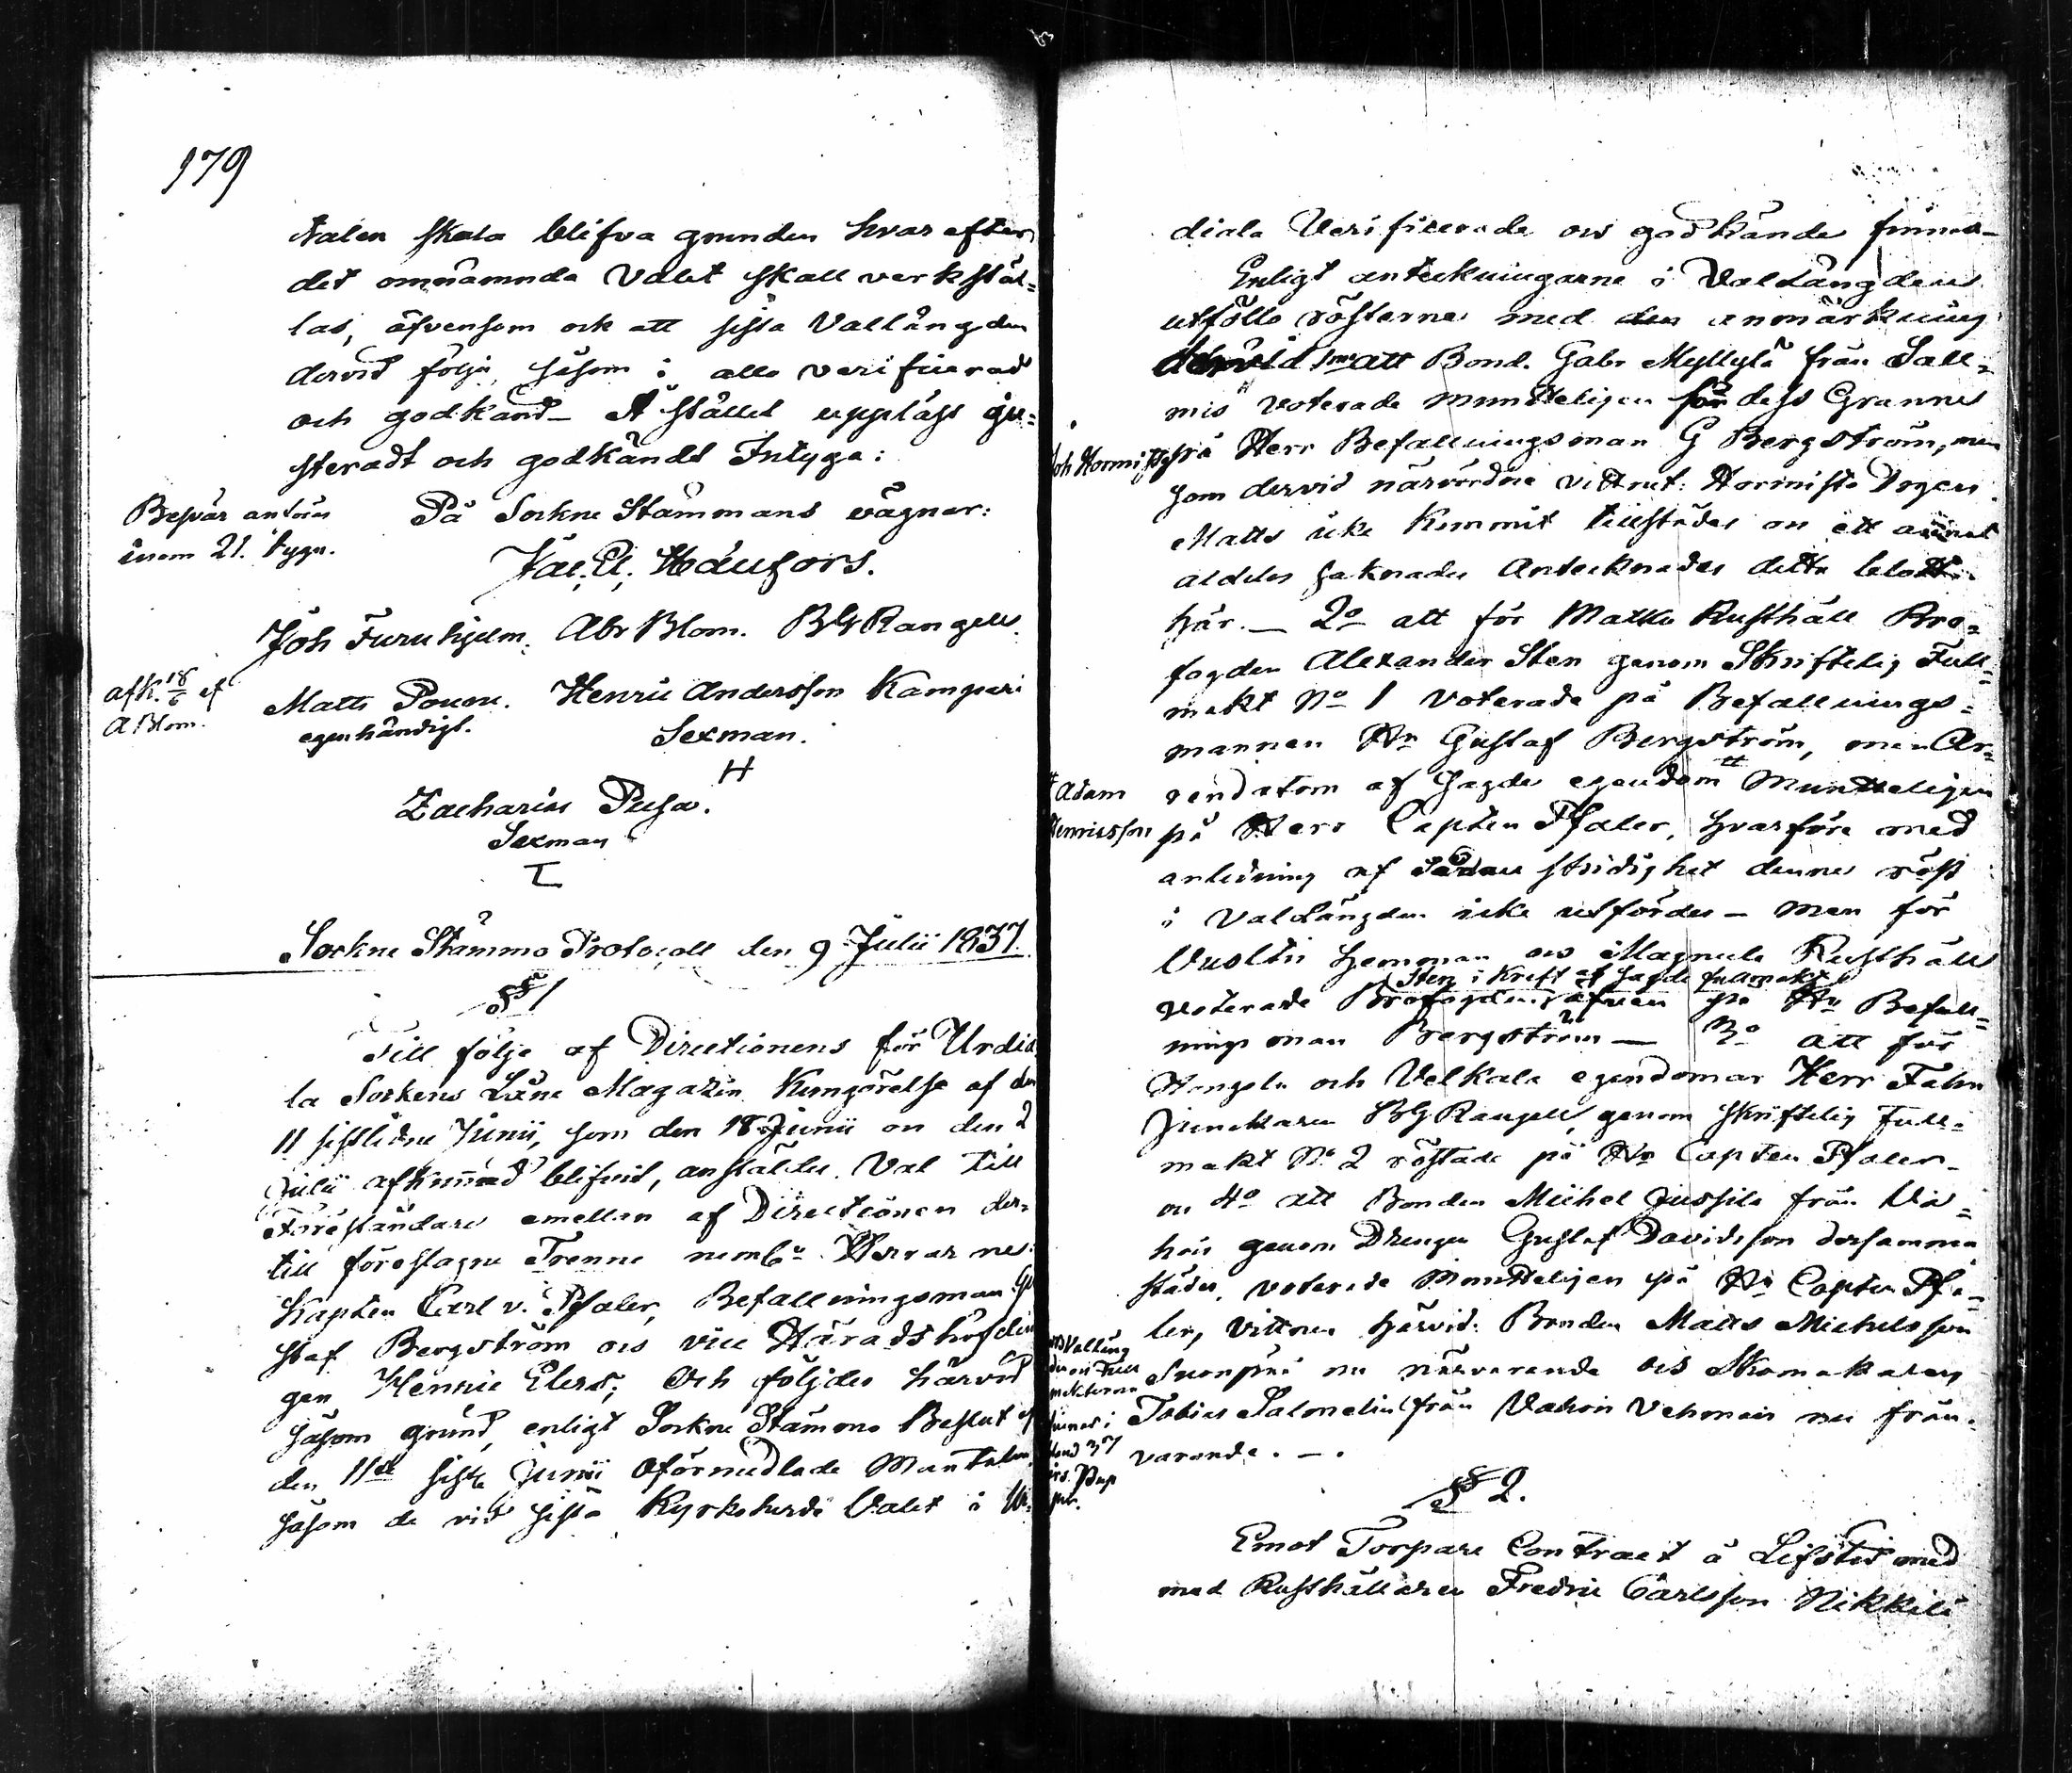 179
talen skola blifva grunden hvarefter
det omnämnda Valet skall verkstäl=
las, äfvensom ock att sista Vallängden
dervid följa, såsom i allo verificerad
och godkänd_ Å stället uppläst ju=
steradt och godkändt Intyga:
Besvär anföres
inom 21. dygn.
På Sockne Stämmans vägnar:
Joh Furuhjelm. Abr Blom. BG Rangell.
afk. 18/6 af
A Blom.
Matts Poune. Henric Andersson Kamperi
egenhändigt. Sexman.
H
Zacharias Pusa.
Sexman
Sockne Stämmo Protocoll den 9 Julii 1837.
§ 1
Till följe af Directionens för Urdia
la Sockens Låne Magazin Kungörelse af den
11 sistledne Junii, som den 18 Junii och den 2
Julii afkunnad blifvit, anställdes Val till
Föreståndare emellan af Directionen der=
till föreslagne Trenne neml: Herrarne
Kapten Carl v. Pfaler, Befallningsman Gu
staf Bergström och vice Häradshöfdin
gen Henric Elers; Och följdes härvid
såsom grund, enligt Sockne Stämmo Beslut af
den 11te siste Junii Oförmedlade Mantalen
såsom de vid sista Kyrkoherde Valet i Ur
diala Verificerade och godkände finnas_
Enligt anteckningarne i Vallängden
utföllo rösterne med den anmärkning
1mo att Bond. Gabr Myllylä från Sall=
mis voterade munteligen för dess Granne
Joh Hormisto på Herr Befallningsman G Bergström, men
som dervid närvordne vittnet: Hormisto Drgen
Matts icke kommit tillstädes och ett annat
aldeles saknades Antecknades detta blott
här._ 2o att för Matku Rusthåll Bro=
fogden Alexander Sten genom Skriftelig Full=
makt No 1 voterade på Befallnings=
mannen Hr Gustaf Bergström, men Ar=
Adam
Henricsson
rendatorn af sagde egendom Munteligen
på Herr Capten Pfaler, hvarföre med
anledning af sådan stridighet denne röst
i Vallängden icke utfördes_ men för
Vuoltis hemman och Magnula Rusthåll
Sten i kraft af sagde fullmakt
voterade Brofogden äfven på Hr Befall=
nings man Bergström_ 3o att för
Hongola och Velkala egendomar Herr Fahn
Junckaren BG Rangell, genom skriftelig Full=
makt No 2 röstade på Hr Capten Pfaler_
och 4o att Bonden Michel Jussila från Va=
hois genom Drengen Gustaf Davidsson dersamma
städes, voterade Munteligen på Hr Capten Pfa=
ler, Vittnen härvid: Bonden Matts Michelsson
Suonpää nu närvarande och Skomakaren
Tobias Salmelin från Vahois Vehmais nu från=
varande._.
Valläng
den och Full
makterne
finnes i
§ 2.
Emot Torpare Contract å Lifstid med
med Rusthållaren Fredric Carlsson Nikkilä